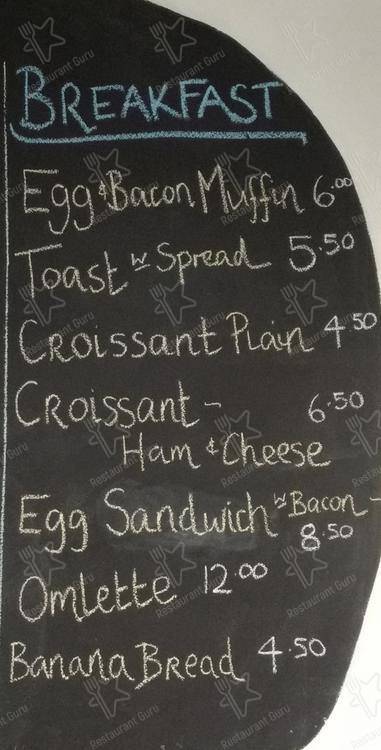 BREAKFAST
Egg & Bacon Muffin 6.00
Toast w Spread 5.50
Croissant Plain 4.50
Croissant - 6.50
Ham & Cheese
Egg Sandwich w Bacon -
8.50
Omlette 12.00
Banana Bread 4.50
Restaurant Guru